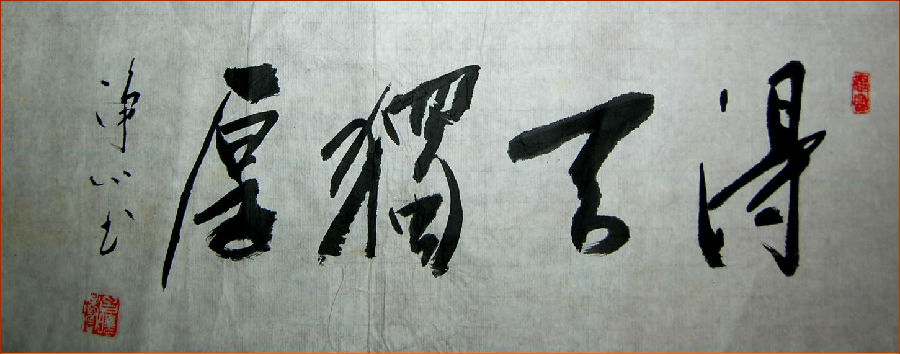 得天獨厚
净心书